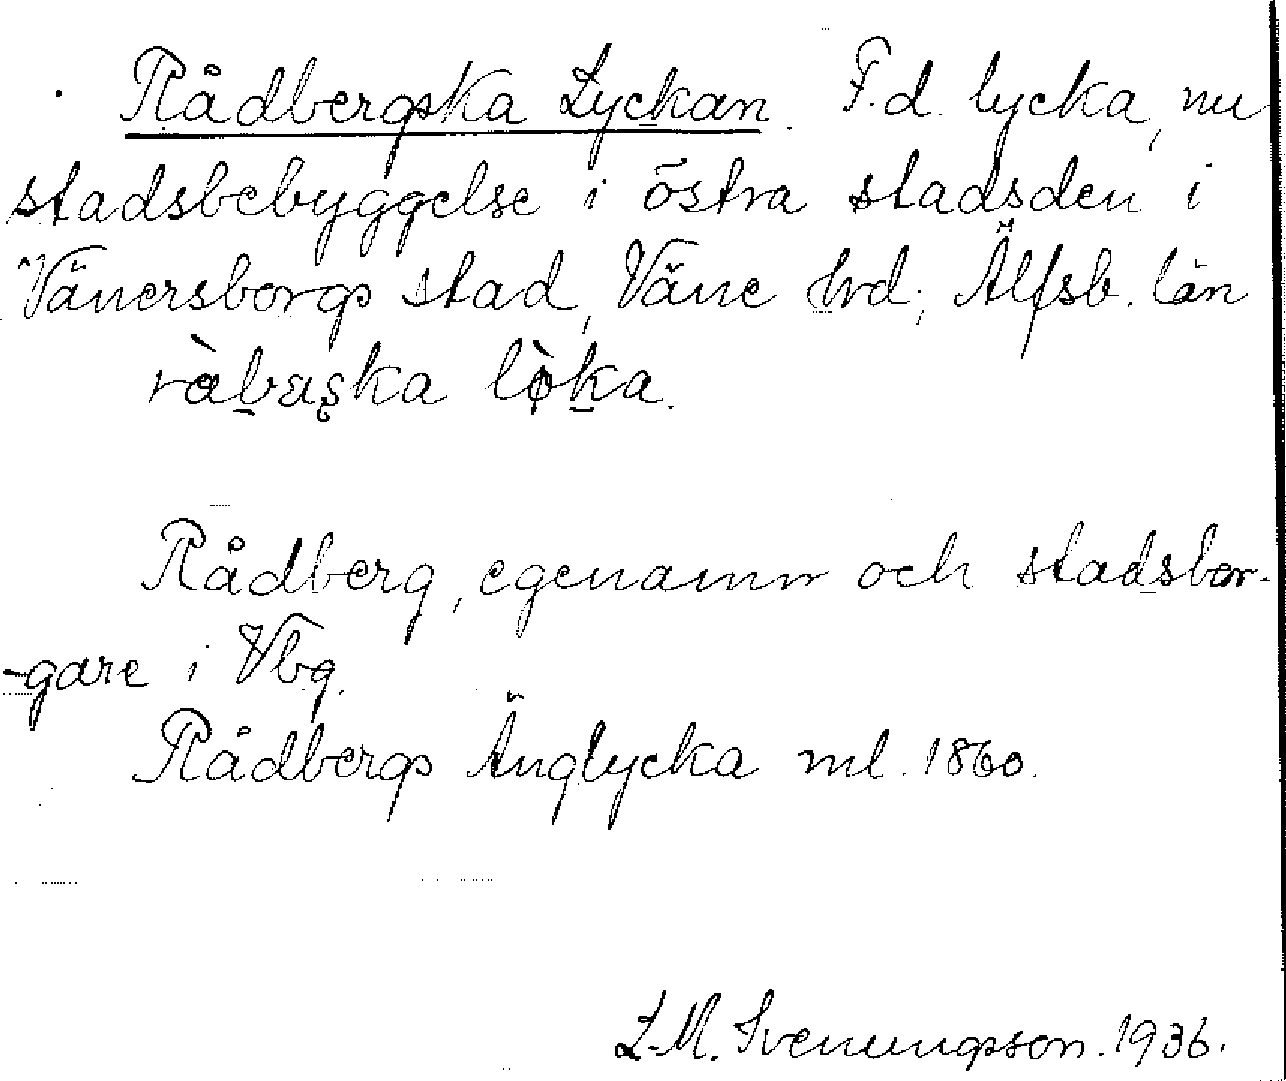 Rådbergska Lyckan. F.d. lycka, nu
stadsbebyggelse i östra stadsden i
Vänersborgs stad, Väne hrd; Älfsb. län
Rådberg, egenamn och stadsbor-
-gare i Vbg.
Rådbergs Änglycka ml. 1860.
L.M. Svenungsson. 1936.